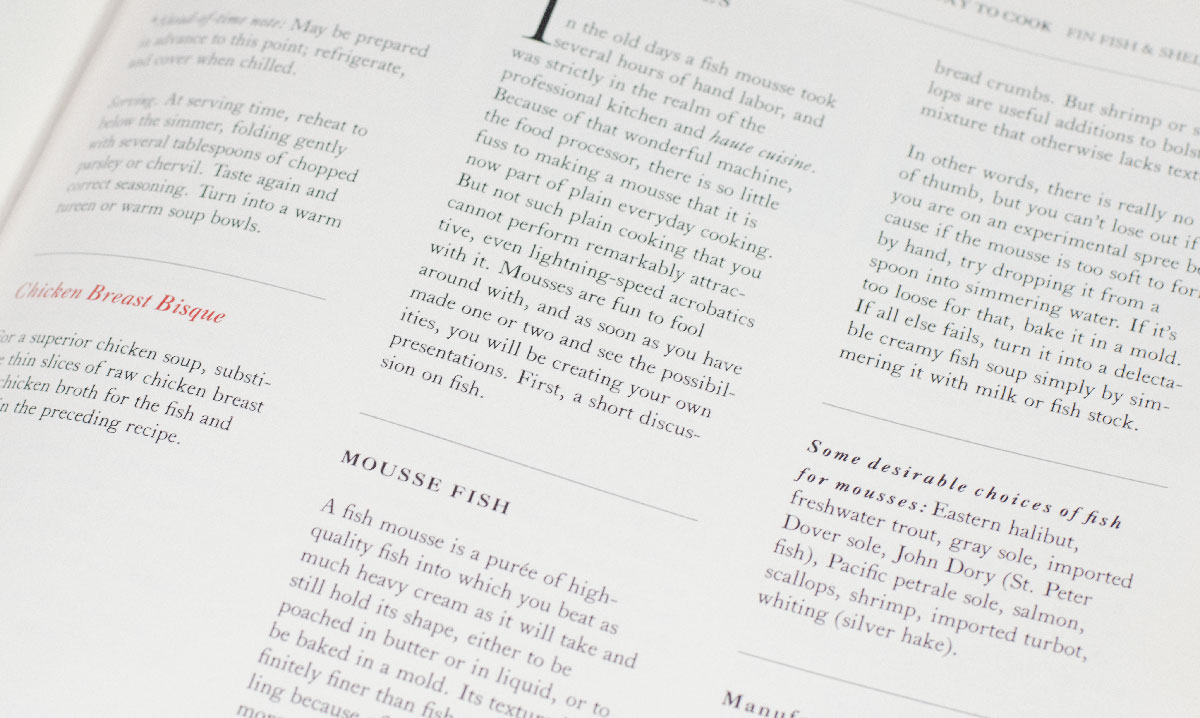 Ahead-of-time note: May be prepared
in advance to this point; refrigerate,
and cover when chilled.
Serving. At serving time, reheat to
below the simmer, folding gently
with several tablespoons of chopped
parsley or chervil. Taste again and
correct seasoning. Turn into a warm
tureen or warm soup bowls.
Chicken Breast Bisque
For a superior chicken soup, substi-
thin slices of raw chicken breast
chicken broth for the fish and
in the preceding recipe.
In the old days a fish mousse took
several hours of hand labor, and
was strictly in the realm of the
professional kitchen and haute cuisine.
Because of that wonderful machine,
the food processor, there is so little
fuss to making a mousse that it is
now part of plain everyday cooking.
But not such plain cooking that you
cannot perform remarkably attrac-
tive, even lightning-speed acrobatics
with it. Mousses are fun to fool
around with, and as soon as you have
made one or two and see the possibil-
ities, you will be creating your own
presentations. First, a short discus-
sion on fish.
MOUSSE FISH
A fish mousse is a purée of high-
quality fish into which you beat as
much heavy cream as it will take and
still hold its shape, either to be
poached in butter or in liquid, or to
be baked in a mold. Its
finitely finer than fish
ling because
TO COOK FIN FISH &
bread crumbs. But shrimp or
lops are useful additions to
mixture that otherwise lacks
In other words, there is really no
of thumb, but you can't lose out if
you are on an experimental spree
cause if the mousse is too soft to
by hand, try dropping it from a
spoon into simmering water. If it's
too loose for that, bake it in a mold.
If all else fails, turn it into a delecta-
ble creamy fish soup simply by sim-
mering it with milk or fish stock.
Some desirable choices of fish
for mousses: Eastern halibut,
freshwater trout, gray sole, imported
Dover sole, John Dory (St. Peter
fish), Pacific petrale sole, salmon,
scallops, shrimp, imported turbot,
whiting (silver hake).